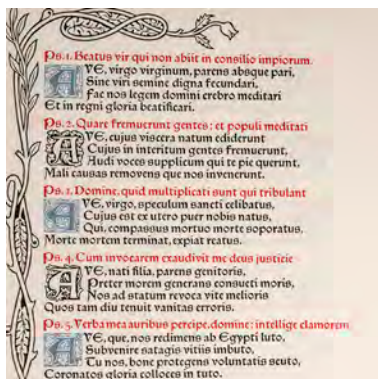 Ps. 1. Beatus vir qui non abiit in consilio impiorum.
AVE, virgo virginum, parens absque pari,
Sine viri semine digna fecundari,
Fac nos legem domini crebro meditari
Et in regni gloria beatificari.
Ps. 2. Quare fremuerunt gentes: et populi meditati
AVE, cujus viscera natum ediderunt
Cujus in interitum gentes fremuerunt,
Audi voces supplicum qui te pie querunt,
Mali causas removens que nos invenerunt.
Ps. 3. Domine, quid multiplicati sunt qui tribulant
AVE, virgo, speculum sancti celibatus,
Cujus est ex utero puer nobis natus,
Qui, compassus mortuo morte soporatus,
Morte mortem terminat, expiat reatus.
Ps. 4. Cum invocarem exaudivit me deus justicie
AVE, nati filia, parens genitoris,
Preter morem generans consueti moris,
Nos ad statum revoca vite melioris
Quos tam diu tenuit vanitas erroris.
Ps. 5. Verba mea auribus percipe, domine: intellige clamorem
AVE, que, nos redimens ab Egypti luto,
Subvenire satagis vitiis imbuto,
Tu nos, bone protegens voluntatis scuto,
Coronatos gloria colloces in tuto.